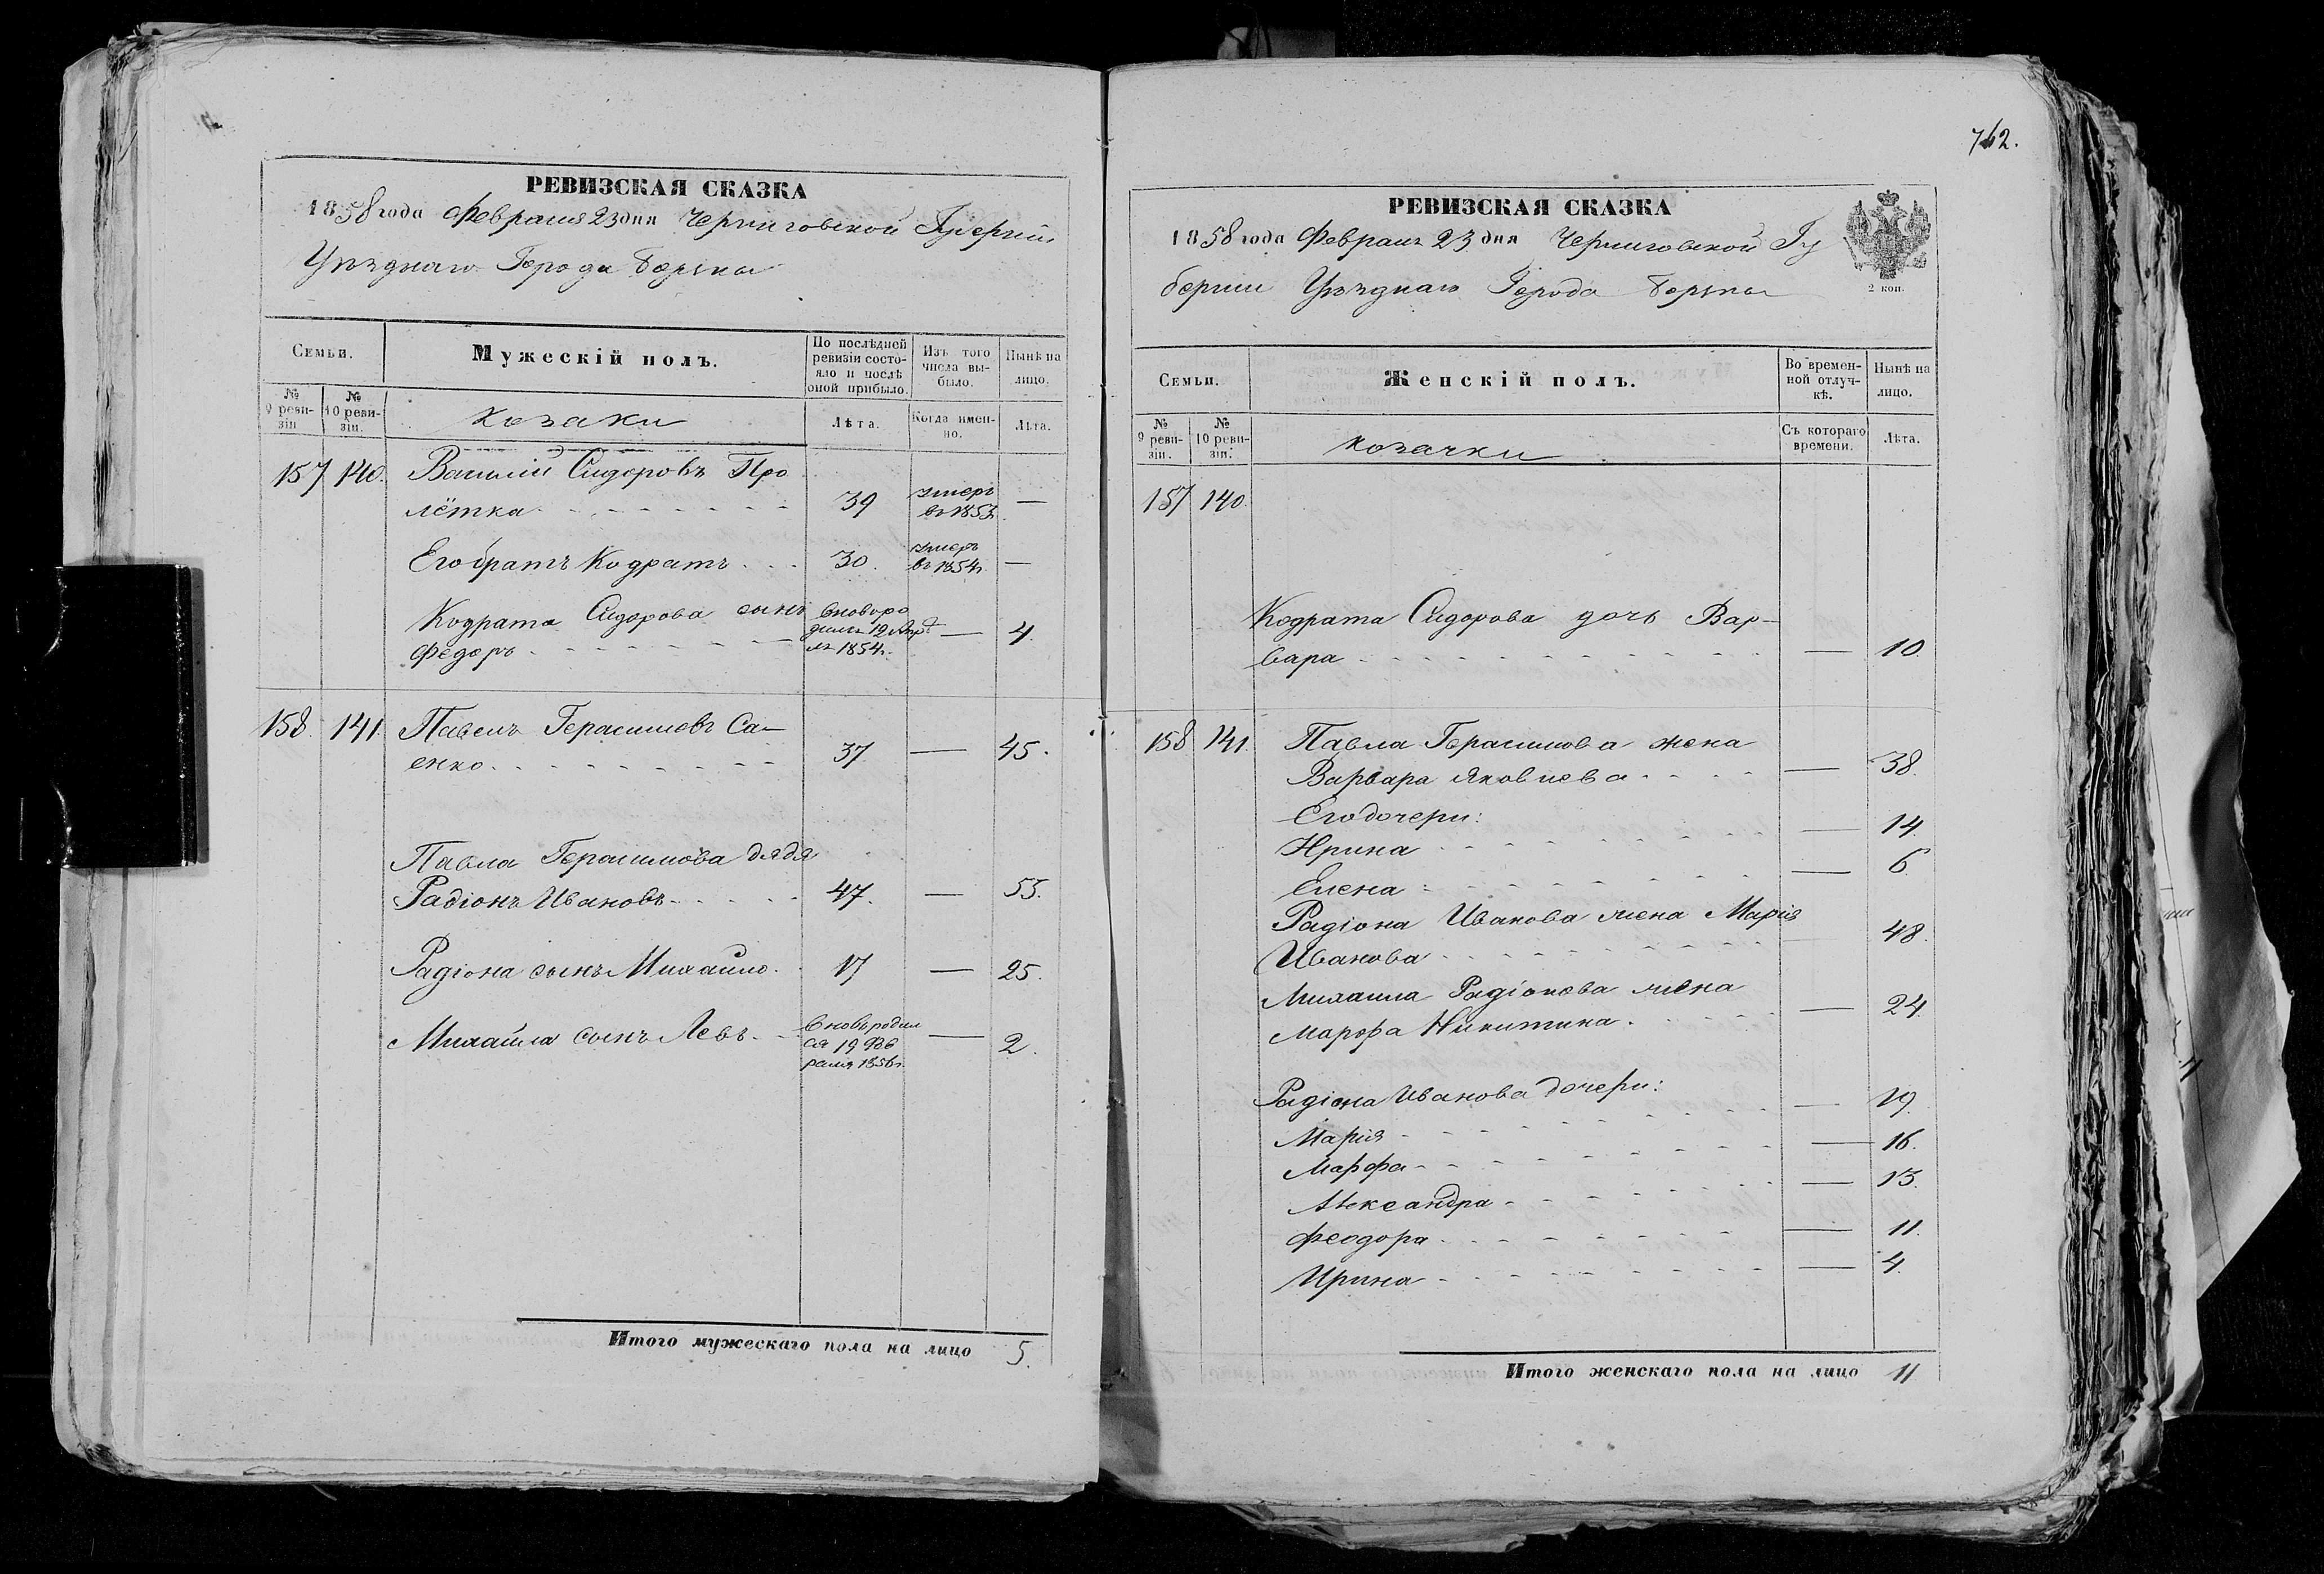 762.
РЕВИЗСКАЯ СКАЗКА
1858 года Февраля 23 дня Черниговской Губернии
Уѣзднаго Города Борзны
Семьи.
Мужескій полъ.
По послѣдней ревизіи состояло и послѣ оной прибыло.
Изъ того числа выбыло.
Нынѣ на лицо.
№ 9 ревизіи
№ 10 ревизіи.
козаки
Лѣта.
Когда именно.
Лѣта.
157 140. Василій Сидоровъ Про
лётка 39 умеръ въ 1853 —
Его братъ Кодратъ 30. умеръ въ 1854г. —
Кодрата Сидорова сынъ
Федоръ — 4.
158. 141. Павелъ Герасимовъ Са-
енко 37 — 45.
Павла Герасимова дядя
Радіонъ Ивановъ 47. — 55.
Радіона сынъ Михайло 17 — 25.
Михайла сынъ Левъ вновь родился 19 Февраля 1856г. — 2.
Итого мужескаго пола на лицо 5.
РЕВИЗСКАЯ СКАЗКА
1858 года Февраля 23 дня Черниговской Гу
берніи Уѣзднаго Города Борзны
2 коп.
Семьи.
Женскій полъ.
Во временной отлучкѣ.
Нынѣ на лицо.
№ 9 ревизіи.
№ 10 ревизіи.
козачки
Съ котораго времени.
Лѣта.
157 140.
Кодрата Сидорова дочь Вар-
вара — 10.
158 141 Павла Герасимова жена
Варвара Яковлева — 38.
Его дочери:
Ирина — 14.
Елена — 6.
Радіона Иванова жена Марія
Иванова — 48.
Михаила Радіонова жена
Марфа Никитина — 24.
Радіона Иванова дочери:
Марія — 19.
Марфа — 16.
Александра — 13.
Феодора — 11.
Ирина — 4.
Итого женскаго пола на лицо 11